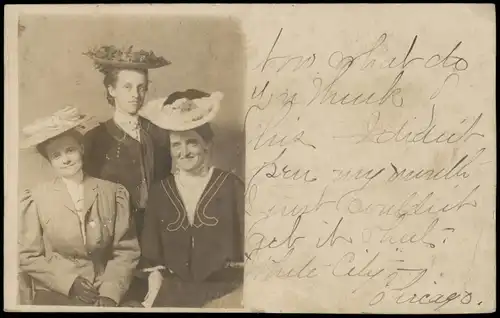 Now what do
you think of
this I didn't
open my mouth
I just couldn't
get it shut.
White City -
Chicago.